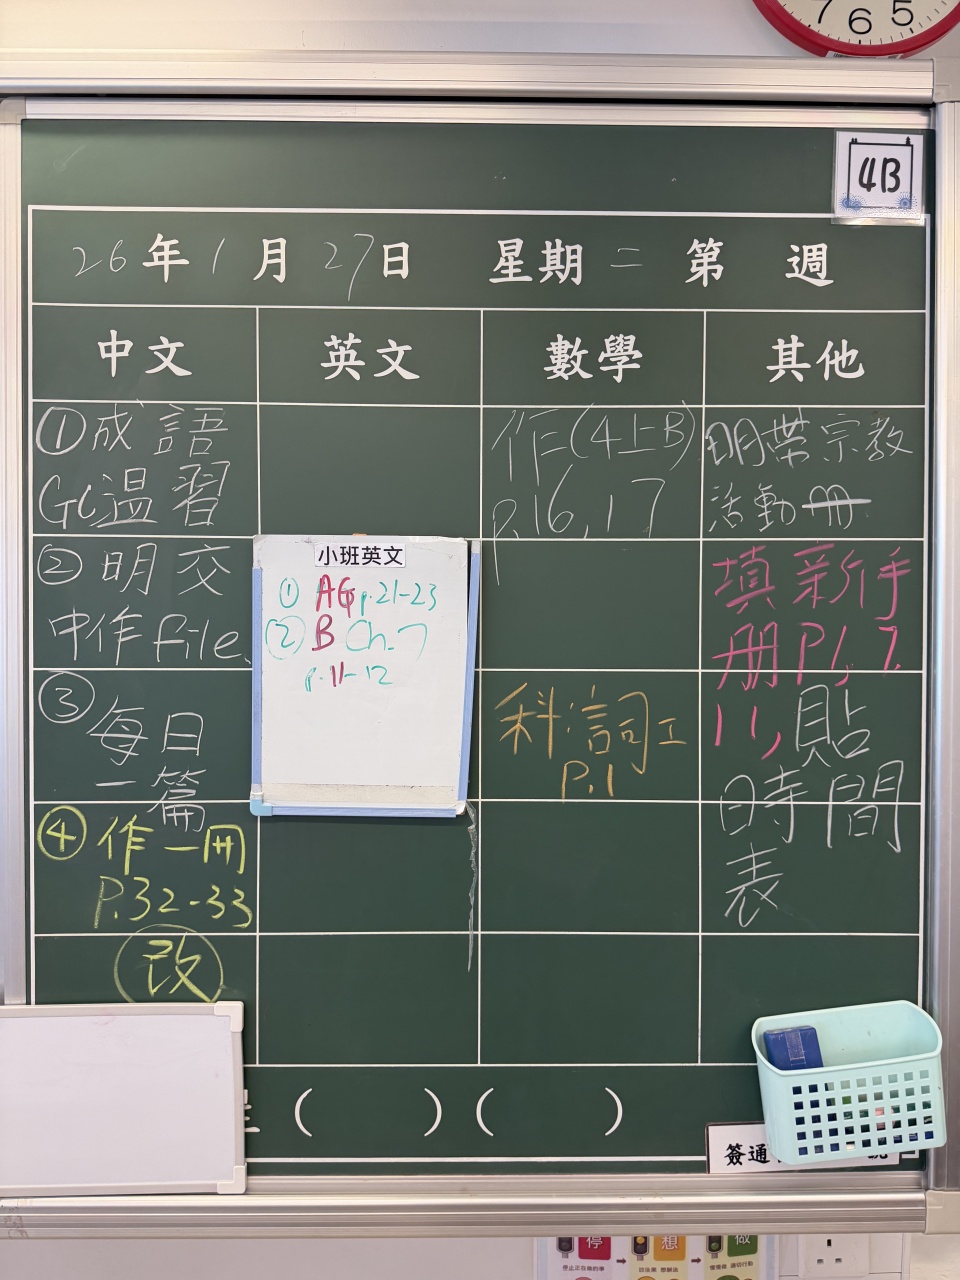 7 6 5
4B
26年1月27日 星期二 第 週
中文 英文 數學 其他
①成語
GC温習
②明交
中作file
③每日
一篇
④作一冊
P.32-33
改
小班英文
① AG p.21-23
② B Ch.7
p.11-12
作(4上B)
p.16,17
科:詞工
P.1
明帶宗教
活動冊
填新年手
册P1,7,
11,貼
時間
表
( ) ( )
簽通
停 想 做
停止正在做的事